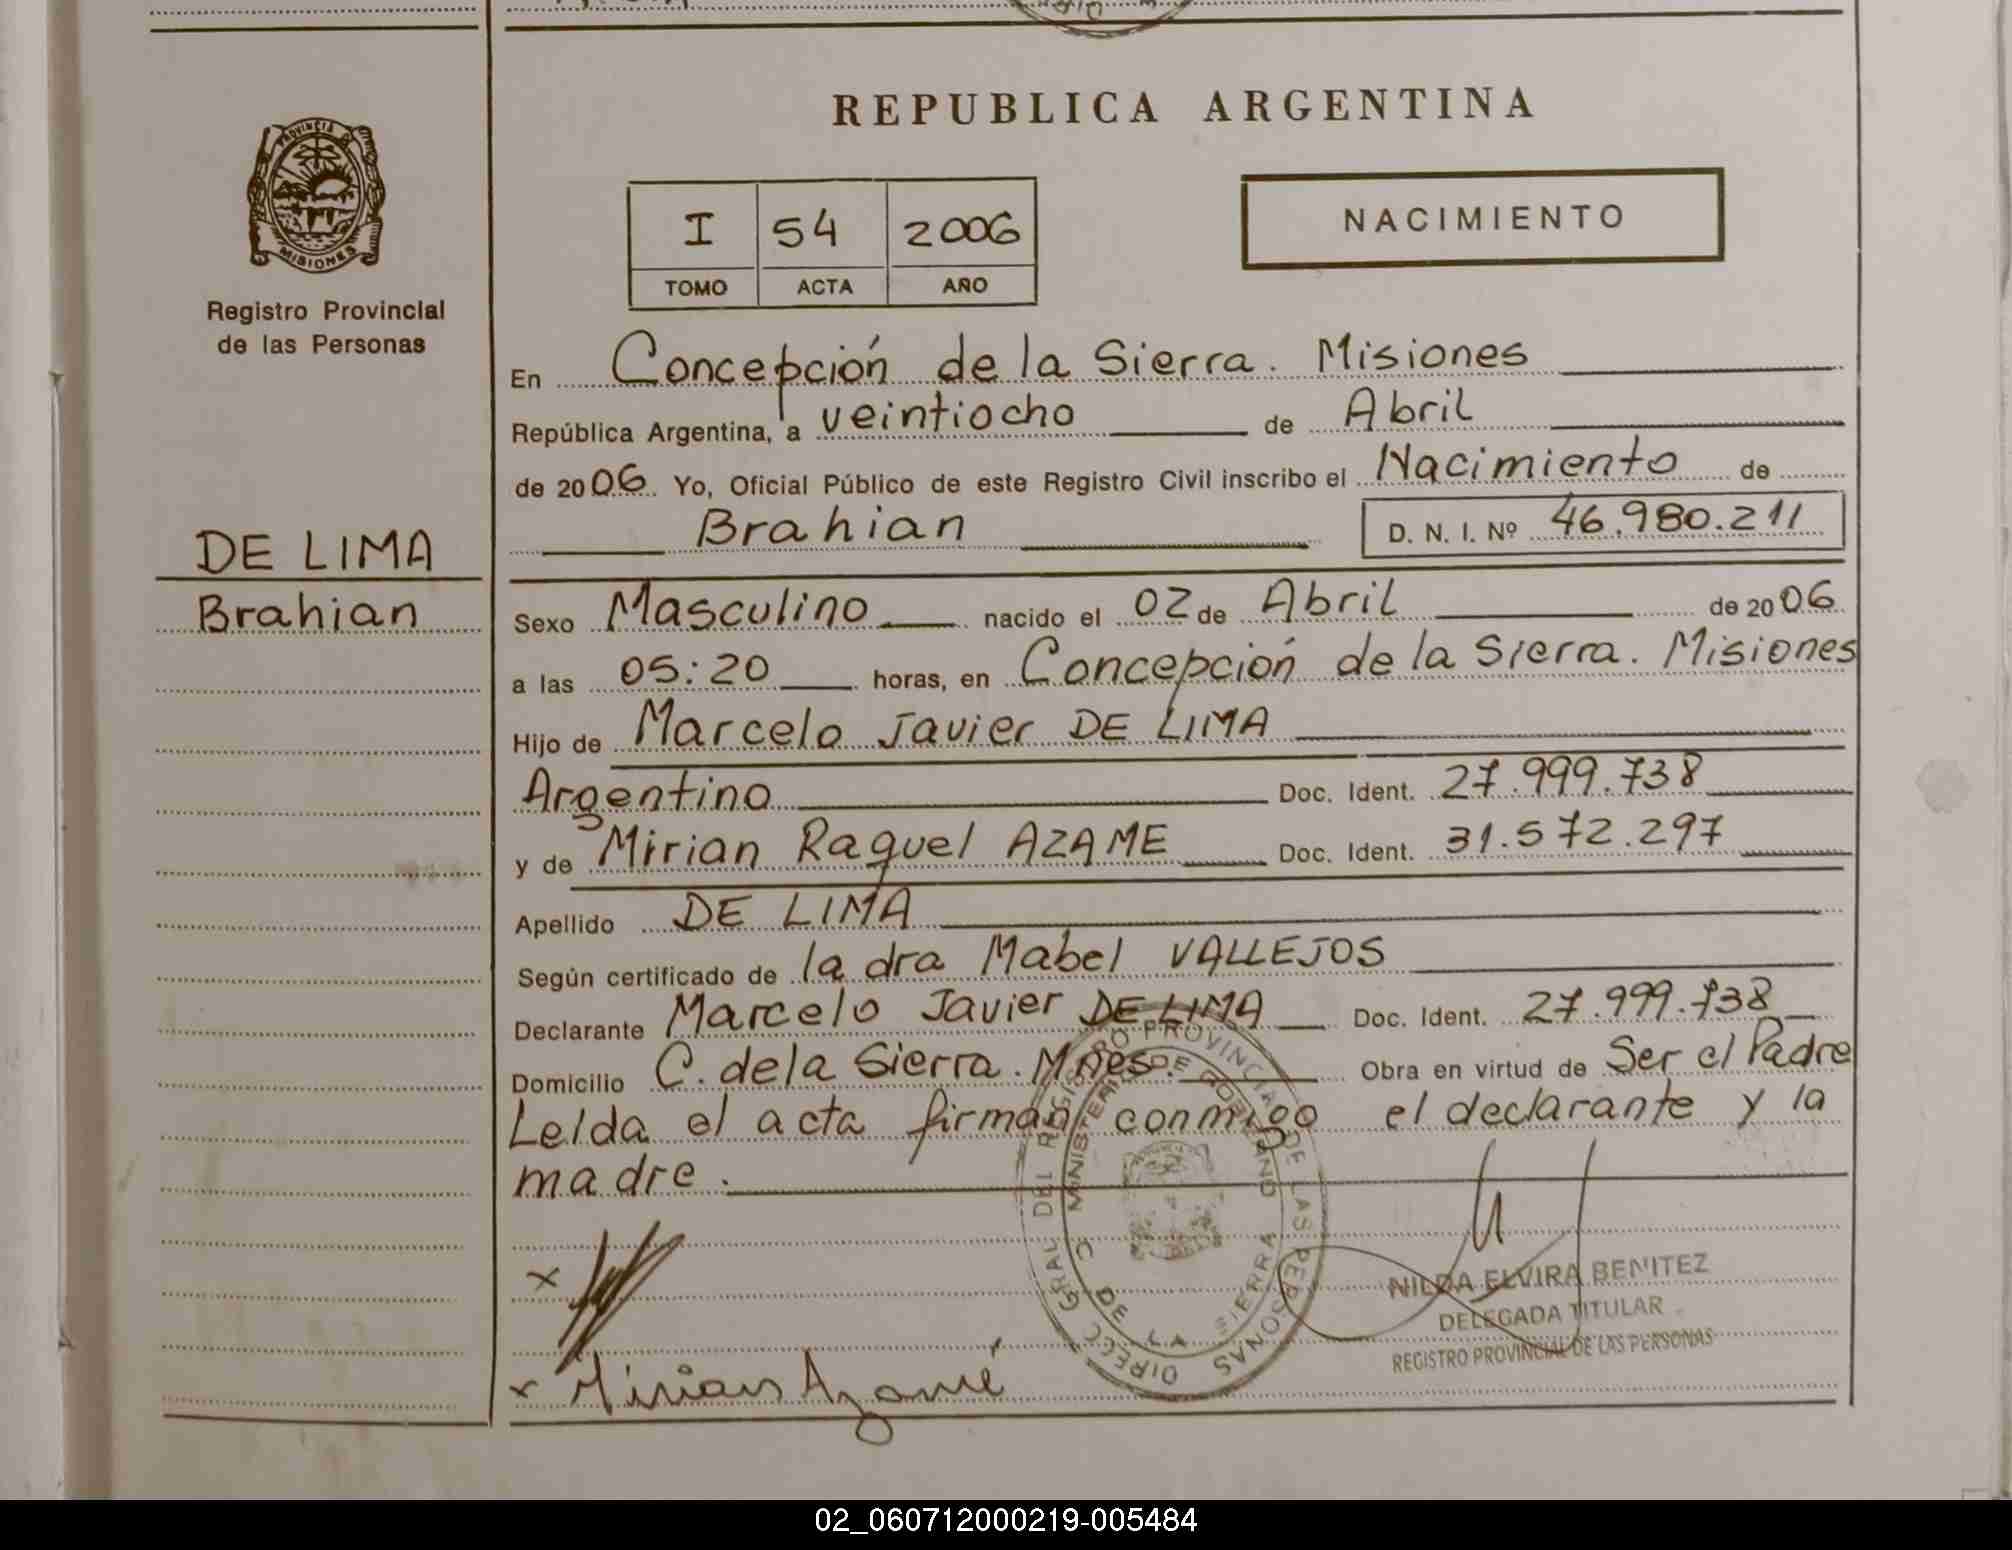 REPUBLICA ARGENTINA
PROVINCIA DE
MISIONES
Registro Provincial
de las Personas
I 54 2006
TOMO ACTA AÑO
NACIMIENTO
DE LIMA
Brahian
En Concepción de la Sierra. Misiones
República Argentina, a veintiocho de Abril
de 2006 Yo, Oficial Público de este Registro Civil inscribo el Nacimiento de
Brahian D. N. I. Nº 46.980.211
Sexo Masculino nacido el 02 de Abril de 2006
a las 05:20 horas, en Concepción de la Sierra. Misiones
Hijo de Marcelo Javier DE LIMA
Argentino Doc. Ident. 27.999.738
y de Mirian Raquel AZAME Doc. Ident. 31.572.297
Apellido DE LIMA
Según certificado de la dra Mabel VALLEJOS
Declarante Marcelo Javier DE LIMA Doc. Ident. 27.999.738
Domicilio C. de la Sierra. Mnes. Obra en virtud de Ser el Padre
Leída el acta firman conmigo el declarante y la
madre.
DIREC. GRAL DEL REGISTRO PROVINCIAL DE LAS PERSONAS
MINISTERIO DE GOBIERNO
C. DE LA SIERRA
x
x Mirian Azamé
NILDA ELVIRA BENITEZ
DELEGADA TITULAR
REGISTRO PROVINCIAL DE LAS PERSONAS
02_060712000219-005484